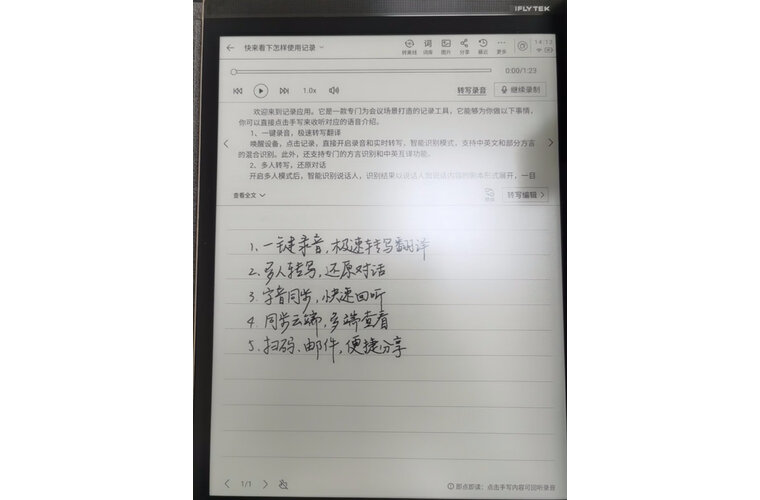 iFLYTEK
快来看下怎样使用记录
转来线 词库 图片 分享 最近 更多
14:12
0:00/1:23
1.0x
转写录音 继续录制
欢迎来到记录应用。它是一款专门为会议场景打造的记录工具，它能够为你做以下事情，
你可以直接点击手写来收听对应的语音介绍。
1、一键录音，极速转写翻译
唤醒设备，点击记录，直接开启录音和实时转写，智能识别模式，支持中英文和部分方言
的混合识别。此外，还支持专门的方言识别和中英互译功能。
2、多人转写，还原对话
开启多人模式后，智能识别说话人，识别结果以说话人加说话内容的剧本形式展开，一目
查看全文
转写编辑
1、一键录音，极速转写翻译
2、多人转写，还原对话
3、字音同步，快速回听
4、同步云端，多端查看
5、扫码、邮件，便捷分享
1/1
即点即读：点击手写内容可回听录音